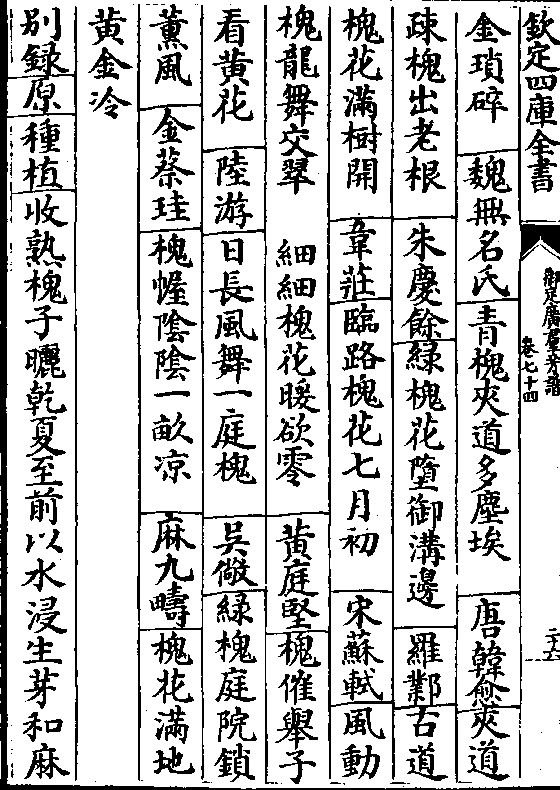 欽定四庫全書
御定廣羣芳譜
卷七十四
金瑣碎　魏無名氏青槐夾道多塵埃　唐韓愈夾道
疎槐出老根　朱慶餘綠槐花墮御溝邊　羅鄴古道
槐花滿樹開　韋莊臨路槐花七月初　宋蘇軾風動
槐龍舞交翠　細細槐花暖欲零　黄庭堅槐催舉子
看黄花　陸游日長風舞一庭槐　吳儆綠槐庭院鎖
薰風　金蔡珪槐幄陰陰一畝凉　麻九疇槐花滿地
黄金冷
别錄原種植收熟槐子曬乾夏至前以水浸生芽和麻